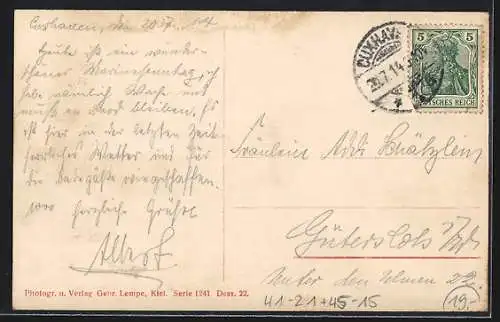 Cuxhaven, den 20.7.14
Heute ist ein wunder-
schöner Marinesonntag, ich
habe nämlich Wache und
muß an Bord bleiben. Es
ist hier in der letzten Zeit
herrliches Wetter und für
die Badegäste wie geschaffen.
1000 herzliche Grüße
Albert
Photogr. u. Verlag Gebr. Lempe, Kiel. Serie 1241 Dess. 22.
CUXHAVEN
20.7.14
5 5
DEUTSCHES REICH
Fräulein
Gütersloh
Unter den Ulmen 29.
41-21+45-15
(19.-)